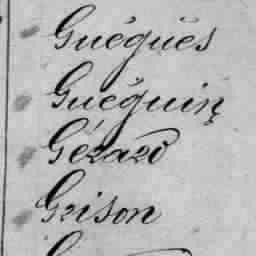 Guéguës
Guéguin
Gérard
Grison